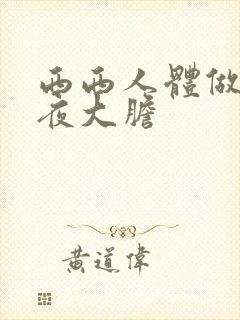 西西人體做
夜大膽
黄道偉